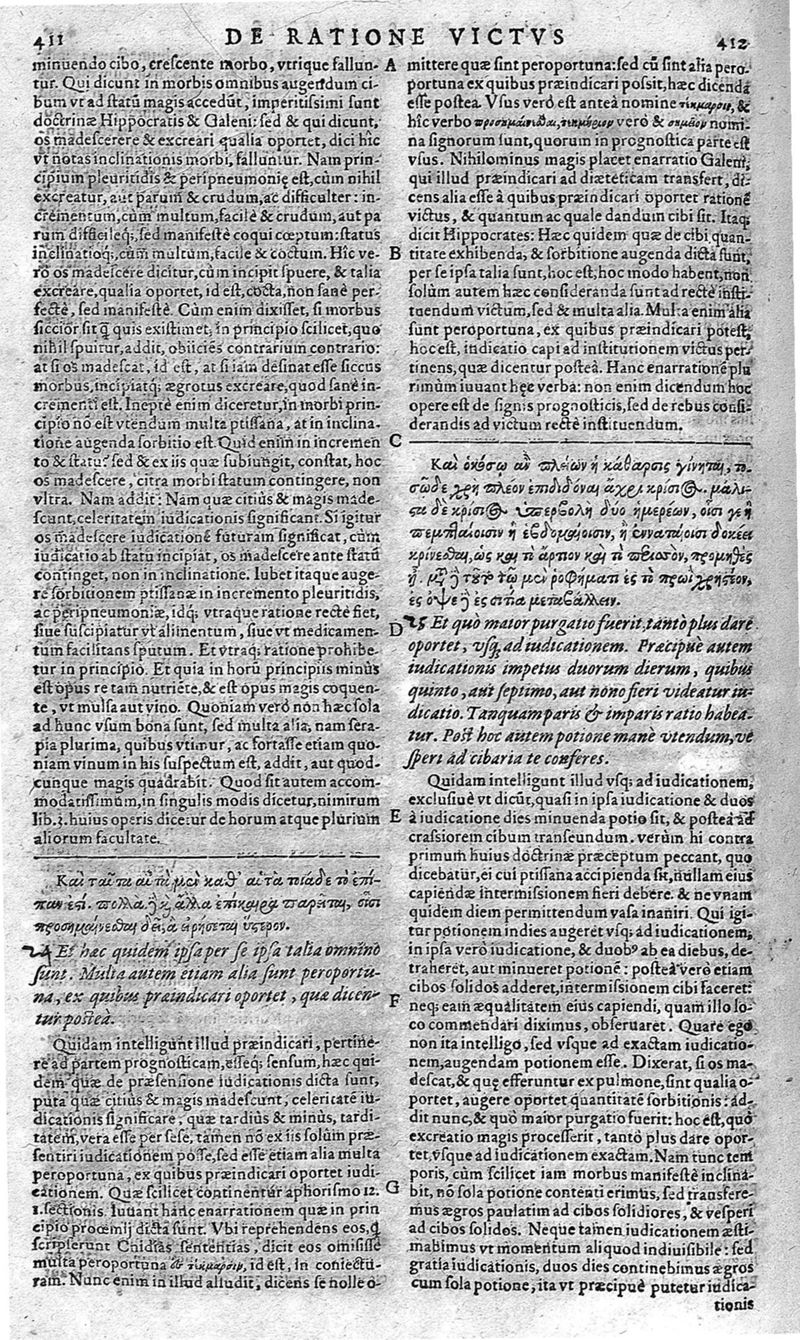 411
DE RATIONE VICTVS
412
minuendo cibo, crescente morbo, vtrique fallun-
tur. Qui dicunt in morbis omnibus augendum ci-
bum vt ad statũ magis accedũt, imperitissimi sunt
doctrinæ Hippocratis & Galeni: sed & qui dicunt,
os madescere & excreari qualia oportet, dici hîc
vt notas inclinationis morbi, falluntur. Nam prin-
cipium pleuritidis & peripneumonię est, cùm nihil
excreatur, aut parum & crudum, ac difficulter: in-
crementum, cùm multum, facilè & crudum, aut pa
rum difficileq;, sed manifestè coqui cœptum: status
inclinatioq;, cùm multum, facile & coctum. Hîc ve-
rò os madescere dicitur, cùm incipit spuere, & talia
excreare, qualia oportet, id est, cocta, non sanè per-
fectè, sed manifestè. Cùm enim dixisset, si morbus
siccior sit ꝗ̃ quis existimet, in principio scilicet, quo
nihil spuitur, addit, obiiciẽs contrarium contrario:
at si os madescat, id est, at si iam desinat esse siccus
morbus, incipiatq; ægrotus excreare, quod sanè in-
crementi est. Ineptè enim diceretur, in morbi prin-
cipio nõ est vtendum multa ptissana, at in inclina-
tione augenda sorbitio est. Quid enim in incremen
to & statu? sed & ex iis quæ subiungit, constat, hoc
os madescere, citra morbi statum contingere, non
vltra. Nam addit: Nam quæ citiùs & magis made-
scunt, celeritatem iudicationis significant. Si igitur
os madescere iudicationẽ futuram significat, cùm
iudicatio ab statu incipiat, os madescere ante statũ
continget, non in inclinatione. Iubet itaque auge-
re sorbitionem ptissanæ in incremento pleuritidis,
ac peripneumoniæ, idq; vtraque ratione rectè fiet,
siue suscipiatur vt alimentum, siue vt medicamen-
tum facilitans sputum. Et vtraq; ratione prohibe-
tur in principio. Et quia in horũ principiis minùs
est opus re tam nutriẽte, & est opus magis coquen-
te, vt mulsa aut vino. Quoniam verò non hæc sola
ad hunc vsum bona sunt, sed multa alia, nam sera-
pia plurima, quibus vtimur, ac fortasse etiam quo-
niam vinum in his suspectum est, addit, aut quod-
cunque magis quadrabit. Quod sit autem accom-
modatissimum, in singulis modis dicetur, nimirum
lib. 2. huius operis dicetur de horum atque plurium
aliorum facultate.
Καὶ ταῦτα αὐτὰ μὲν καθ' αὑτὰ τοιάδε τὸ ἐπί-
παν ἐςί. πολλὰ ἢ κ̀ ἄλλα ἐπίκαιρα παρεῖται, οἷσι
προσημαίνεσθαι δεῖ, ἃ εἰρήσεται ὕστερον.
24 Et hæc quidem ipsa per se ipsa talia omnino
sunt. Multa autem etiam alia sunt peroportu-
na, ex quibus præindicari oportet, quæ dicen-
tur posteà.
Quidam intelligunt illud præindicari, pertine-
re ad partem prognosticam, esseq; sensum, hæc qui-
dem quæ de præsensione iudicationis dicta sunt,
puta quæ citiùs & magis madescunt, celeritatẽ iu-
dicationis significare, quæ tardiùs & minùs, tardi-
tatẽm, vera esse per sese, tamen nõ ex iis solùm præ-
sentiri iudicationem posse, sed esse etiam alia multa
peroportuna, ex quibus præindicari oportet iudi-
cationem. Quæ scilicet continentur aphorismo 12.
1. sectionis. Iuuant hanc enarrationem quæ in prin
cipio procemij dicta sunt. Vbi reprehendens eos, ꝗ
scripserunt Cnidias sententias, dicit eos omisisse
multa peroportuna id est, in coniectu-
ram. Nunc enim in illud alludit, dicens se nolle o-
A
B
C
D
E
F
G
mittere quæ sint peroportuna: sed cũ sint alia pero-
portuna ex quibus præindicari possit, hæc dicenda
esse postea. Vsus verò est anteà nomine τέκμαρσιν, &
hîc verbo προσημαίνεσθαι, τεκμήριον verò & σημεῖον nomi-
na signorum sunt, quorum in prognostica parte est
vsus. Nihilominus magis placet enarratio Galeni,
qui illud præindicari ad diæteticam transfert, di-
cens alia esse à quibus præindicari oportet rationẽ
victus, & quantum ac quale dandum cibi sit. Itaq;
dicit Hippocrates: Hæc quidem quæ de cibi quan-
titate exhibenda, & sorbitione augenda dicta sunt,
per se ipsa talia sunt, hoc est, hoc modo habent, non
solùm autem hæc consideranda sunt ad rectè insti-
tuendum victum, sed & multa alia. Multa enim alia
sunt peroportuna, ex quibus præindicari potest,
hoc est, indicatio capi ad institutionem victus per-
tinens, quæ dicentur posteà. Hanc enarrationẽ plu
rimùm iuuant hęc verba: non enim dicendum hoc
opere est de signis prognosticis, sed de rebus consi-
derandis ad victum rectè instituendum.
Καὶ ὁκόσῳ ἂν πλείων ἡ κάθαρσις γίνηται, το-
σῷδε χρὴ πλέον ἐπιδιδόναι ἄχρι κρίσιος. μάλι-
ςα δὲ κρίσιος ὑπερβολῇ δύο ἡμερέων, οἷσί γε ἢ
πεμπταίοισιν ἢ ἑβδομαίοισιν, ἢ ἐνναταίοισι δοκέει
κρίνεσθαι, ὡς καὶ τὸ ἄρτιον καὶ τὸ περισσὸν, προμηθὲς
ᾖ. μετὰ ἢ τοῦτο τῷ μὲν ροφήματι ἐς τὸ πρωὶ χρηςέον,
ἐς ὀψὲ ἢ ἐς σιτία μεταβάλλειν.
25 Et quò maior purgatio fuerit, tantò plus dare
oportet, vsq; ad iudicationem. Præcipuè autem
iudicationis impetus duorum dierum, quibus
quinto, aut septimo, aut nono fieri videatur iu-
dicatio. Tanquam paris & imparis ratio habea-
tur. Post hoc autem potione manè vtendum, ve
speri ad cibaria te conferes.
Quidam intelligunt illud vsq; ad iudicationem,
exclusiuè vt dicũt, quasi in ipsa iudicatione & duos
à iudicatione dies minuenda potio sit, & posteà ad
crassiorem cibum transeundum. verùm hi contra
primum huius doctrinæ præceptum peccant, quo
dicebatur, ei cui ptissana accipienda sit, nullam eius
capiendæ intermissionem fieri debere. & ne vnam
quidem diem permittendum vasa inaniri. Qui igi-
tur potionem indies augeret vsq; ad iudicationem,
in ipsa verò iudicatione, & duobꝰ ab ea diebus, de-
traheret, aut minueret potionẽ: posteà verò etiam
cibos solidos adderet, intermissionem cibi faceret:
neq; eam æqualitatem eius capiendi, quam illo lo-
co commendari diximus, obseruaret. Quare ego
non ita intelligo, sed vsque ad exactam iudicatio-
nem, augendam potionem esse. Dixerat, si os ma-
descat, & quę efferuntur ex pulmone, sint qualia o-
portet, augere oportet quantitatẽ sorbitionis: ad-
dit nunc, & quò maior purgatio fuerit: hoc est, quò
excreatio magis processerit, tantò plus dare opor-
tet, vsque ad iudicationem exactam. Nam tunc tem
poris, cùm scilicet iam morbus manifestè inclina-
bit, nõ sola potione contenti erimus, sed transfere-
mus ægros paulatim ad cibos solidiores, & vesperi
ad cibos solidos. Neque tamen iudicationem æsti-
mabimus vt momentum aliquod indiuisibile: sed
gratia iudicationis, duos dies continebimus ægros
cum sola potione, ita vt præcipuè putetur iudica-
tionis